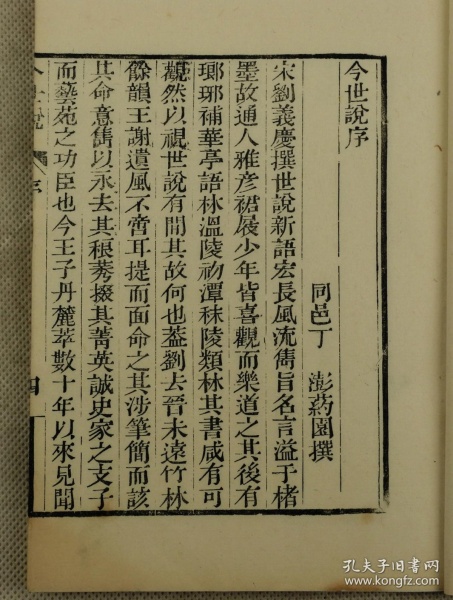 今世說序
同邑丁　澎葯園撰
宋劉義慶撰世說新語宏長風流雋旨名言溢于楮
墨故通人雅彥裙屐少年皆喜觀而樂道之其後有
瑯琊補華亭語林溫陵初潭秣陵類林其書咸有可
觀然以視世說有間其故何也葢劉去晉未遠竹林
餘韻王謝遺風不啻耳提而面命之其涉筆簡而該
其命意雋以永去其稂莠掇其菁英誠史家之支子
而藝苑之功臣也今王子丹麓萃數十年以來見聞
今世說
序
四
孔夫子旧书网
www.kongfz.com